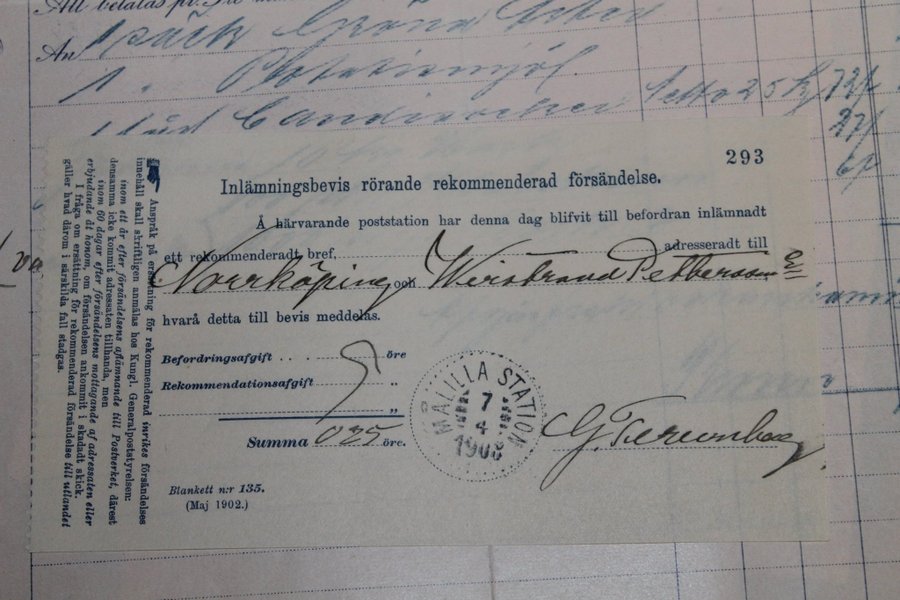 Att betalas pr.
An 1 säck Gröna
1 "
netto 25
27/-
6/-
293
Inlämningsbevis rörande rekommenderad försändelse.
Å härvarande poststation har denna dag blifvit till befordran inlämnadt
ett rekommenderadt bref, adresseradt till
Norrköping och Werstrand Pettersson
hvarå detta till bevis meddelas.
Befordringsafgift . . . öre
Rekommendationsafgift "
"
Summa 025 öre.
Blankett n:r 135.
(Maj 1902.)
MÅLILLA STATION
7
4
1908
Anspråk på ersättning för rekommenderad inrikes försändelses
innehåll skall skriftligen anmälas hos Kungl. Generalpoststyrelsen:
inom ett år efter försändelsens aflämnande till Postverket, därest
densamma icke kommit adressaten tillhanda, men
inom 60 dagar efter försändelsens mottagande af adressaten eller
erbjudande åt honom, om försändelsen ankommit i skadadt skick.
I fråga om ersättning för rekommenderad försändelse till utlandet
gäller hvad därom i särskilda fall stadgas.